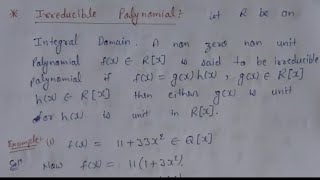 * Irreducible Polynomial : Let R be an
Integral Domain. A non zero non unit
Polynomial f(x) ∈ R[x] is said to be irreducible
Polynomial if f(x) = g(x) h(x) , g(x) ∈ R[x]
h(x) ∈ R[x] then either g(x) is unit
or h(x) is unit in R[x].
Example: (i) f(x) = 11 + 33x² ∈ Q[x]
Solⁿ Now f(x) = 11(1 + 3x²)